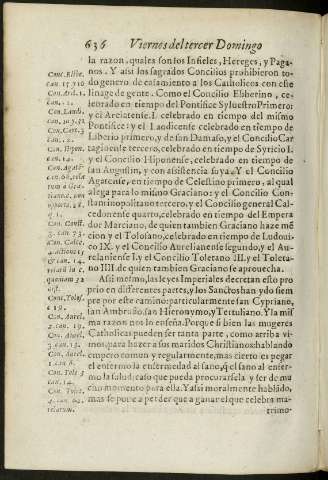 636 Viernes del tercer Domingo
la razon, quales son los Infieles, Hereges, y Paga-
nos. Y asi los sagrados Concilios prohibieron to-
do genero de casamiento a los Catholicos con este
linage de gente. Como el Concilio Elberino, ce-
lebrado en tiempo del Pontifice Sylvestro Primero:
y el Arelatense I. celebrado en tiempo del mismo
Pontifice: y el Laudicense celebrado en tiempo de
Liberio primero, y de san Damaso, y el Concilio Car
tagioense tercero, celebrado en tiempo de Syricio I.
y el Concilio Hiponense, celebrado en tiempo de
san Augustin, y con asistencia suya. Y el Concilio
Agatense, en tiempo de Celestino primero, al qual
alega para lo mismo Graciano: y el Concilio Con-
stantinopolitano tercero, y el Concilio general Cal-
cedonente quarto, celebrado en tiempo del Empera
dor Marciano, de quien tambien Graciano haze mē
cion y el Tolosano, celebrado en tiempo de Ludoui-
co IX. y el Concilio Aurelianense segundo, y el Au-
relaniense I. y el Concilio Toletano III. y el Toleta-
no IIII. de quien tambien Graciano se aprouecha.
Assi mesmo, las leyes Imperiales decretan esto pro
prio en diferentes partes, y los Sanctos han ydo siem
pre por este camino: particularmente san Cypriano,
san Ambrosio, san Hieronymo, y Tertuliano. Y la mis
ma razon nos lo enseña. Porque si bien las mugeres
Catholicas pueden ser tanta parte, como arriba vi-
mos, para hazer a sus maridos Christianos hablando
empero comun y regularmente, mas cierto es pegar
el enfermo la enfermedad al sano, q̃ el sano al enfer-
mo la salud: caso que pueda procurarsela y ser de mu
cho momento para ella. Y assi moralmente hablādo,
mas se pone a perder que a ganar el que celebra ma-
trimo-
Con. Elibe.
can. 15. y 16
Con. Arel. 1.
can. 11.
Con. Laudi.
can. 10. y 31
Con. Cart. 3
can. 12.
Con. Hipon.
can. 14.
Con. Agath.
c. 67. rela
tum a Gra-
tiano.
q. 1.
Con. Const.
3. can. 73.
Con. Calce.
can. 14.
relatū in c.
quoniam 32
dist.
Con. Tolos.
c. 19.
Con. Aurel.
2. can. 19.
Con. Aurel.
3. can. 13.
Con. Aurel.
Con. Tole. 3
can. 14.
Con. Tolet.
4. can. 62.
relatum.